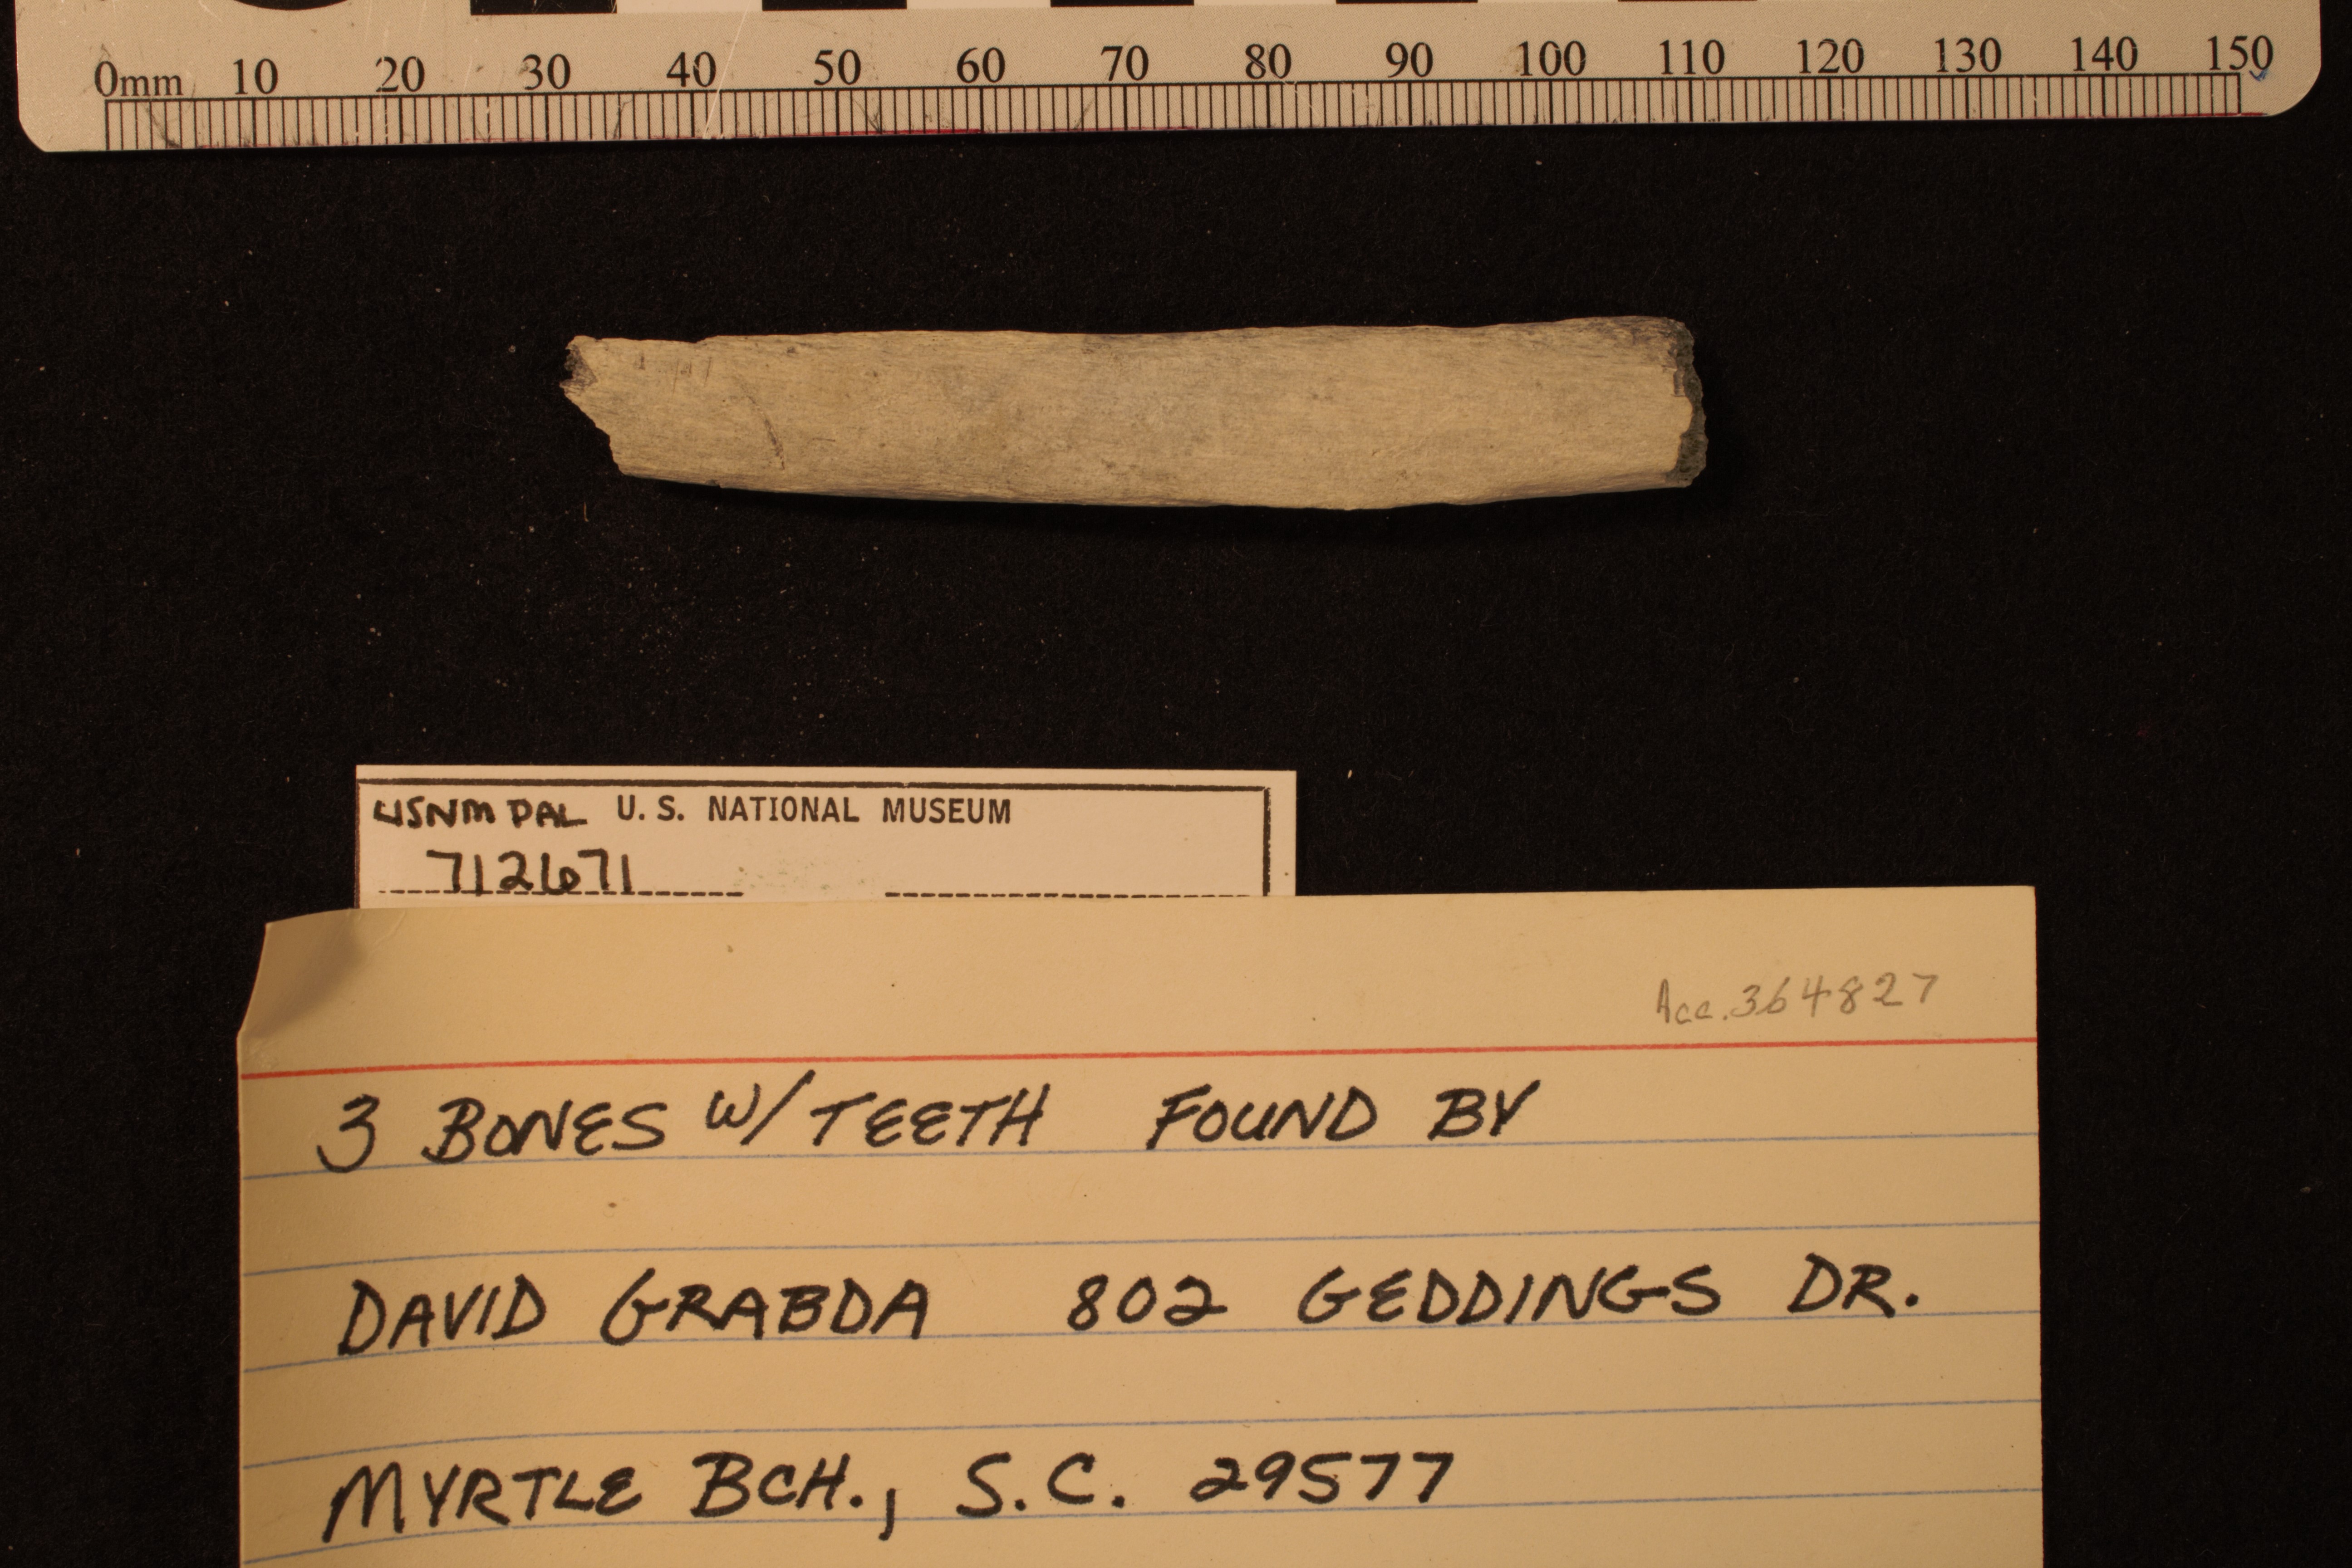 0mm 10 20 30 40 50 60 70 80 90 100 110 120 130 140 150
USNM PAL U.S. NATIONAL MUSEUM
712671
Acc. 364827
3 BONES W/ TEETH FOUND BY
DAVID GRABDA 802 GEDDINGS DR.
MYRTLE BCH., S.C. 29577